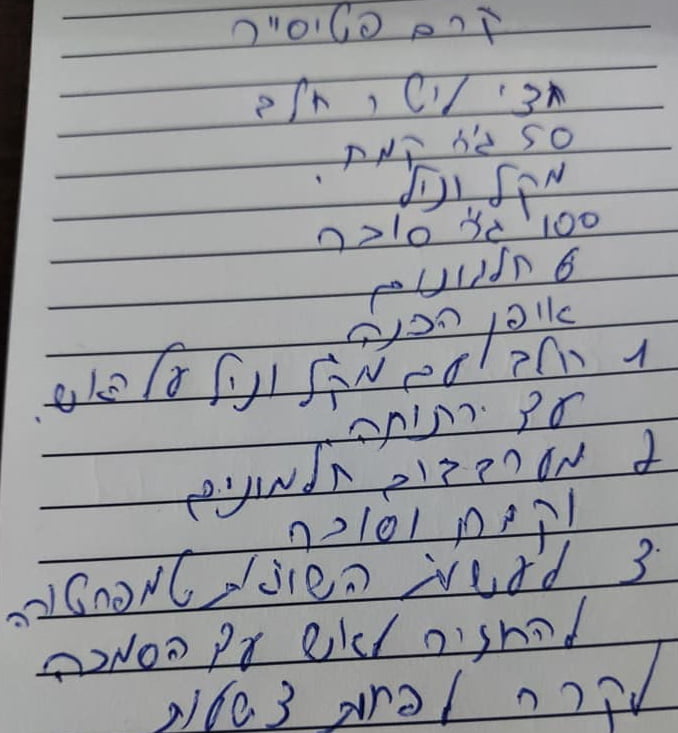 קרם פטיסייר
חצי ליטר חלב
50 גר' קמח
מקל וניל
100 גר' סוכר
6 חלמונים
אופן הכנה
1 חלב עם מקל וניל על האש.
עד רתיחה.
2 מערבבים חלמונים
וקמח וסוכר
3 לעשות השוואת טמפרטורה
להחזיר לאש עד הסמכה
לקרר לפחות 3 שעות